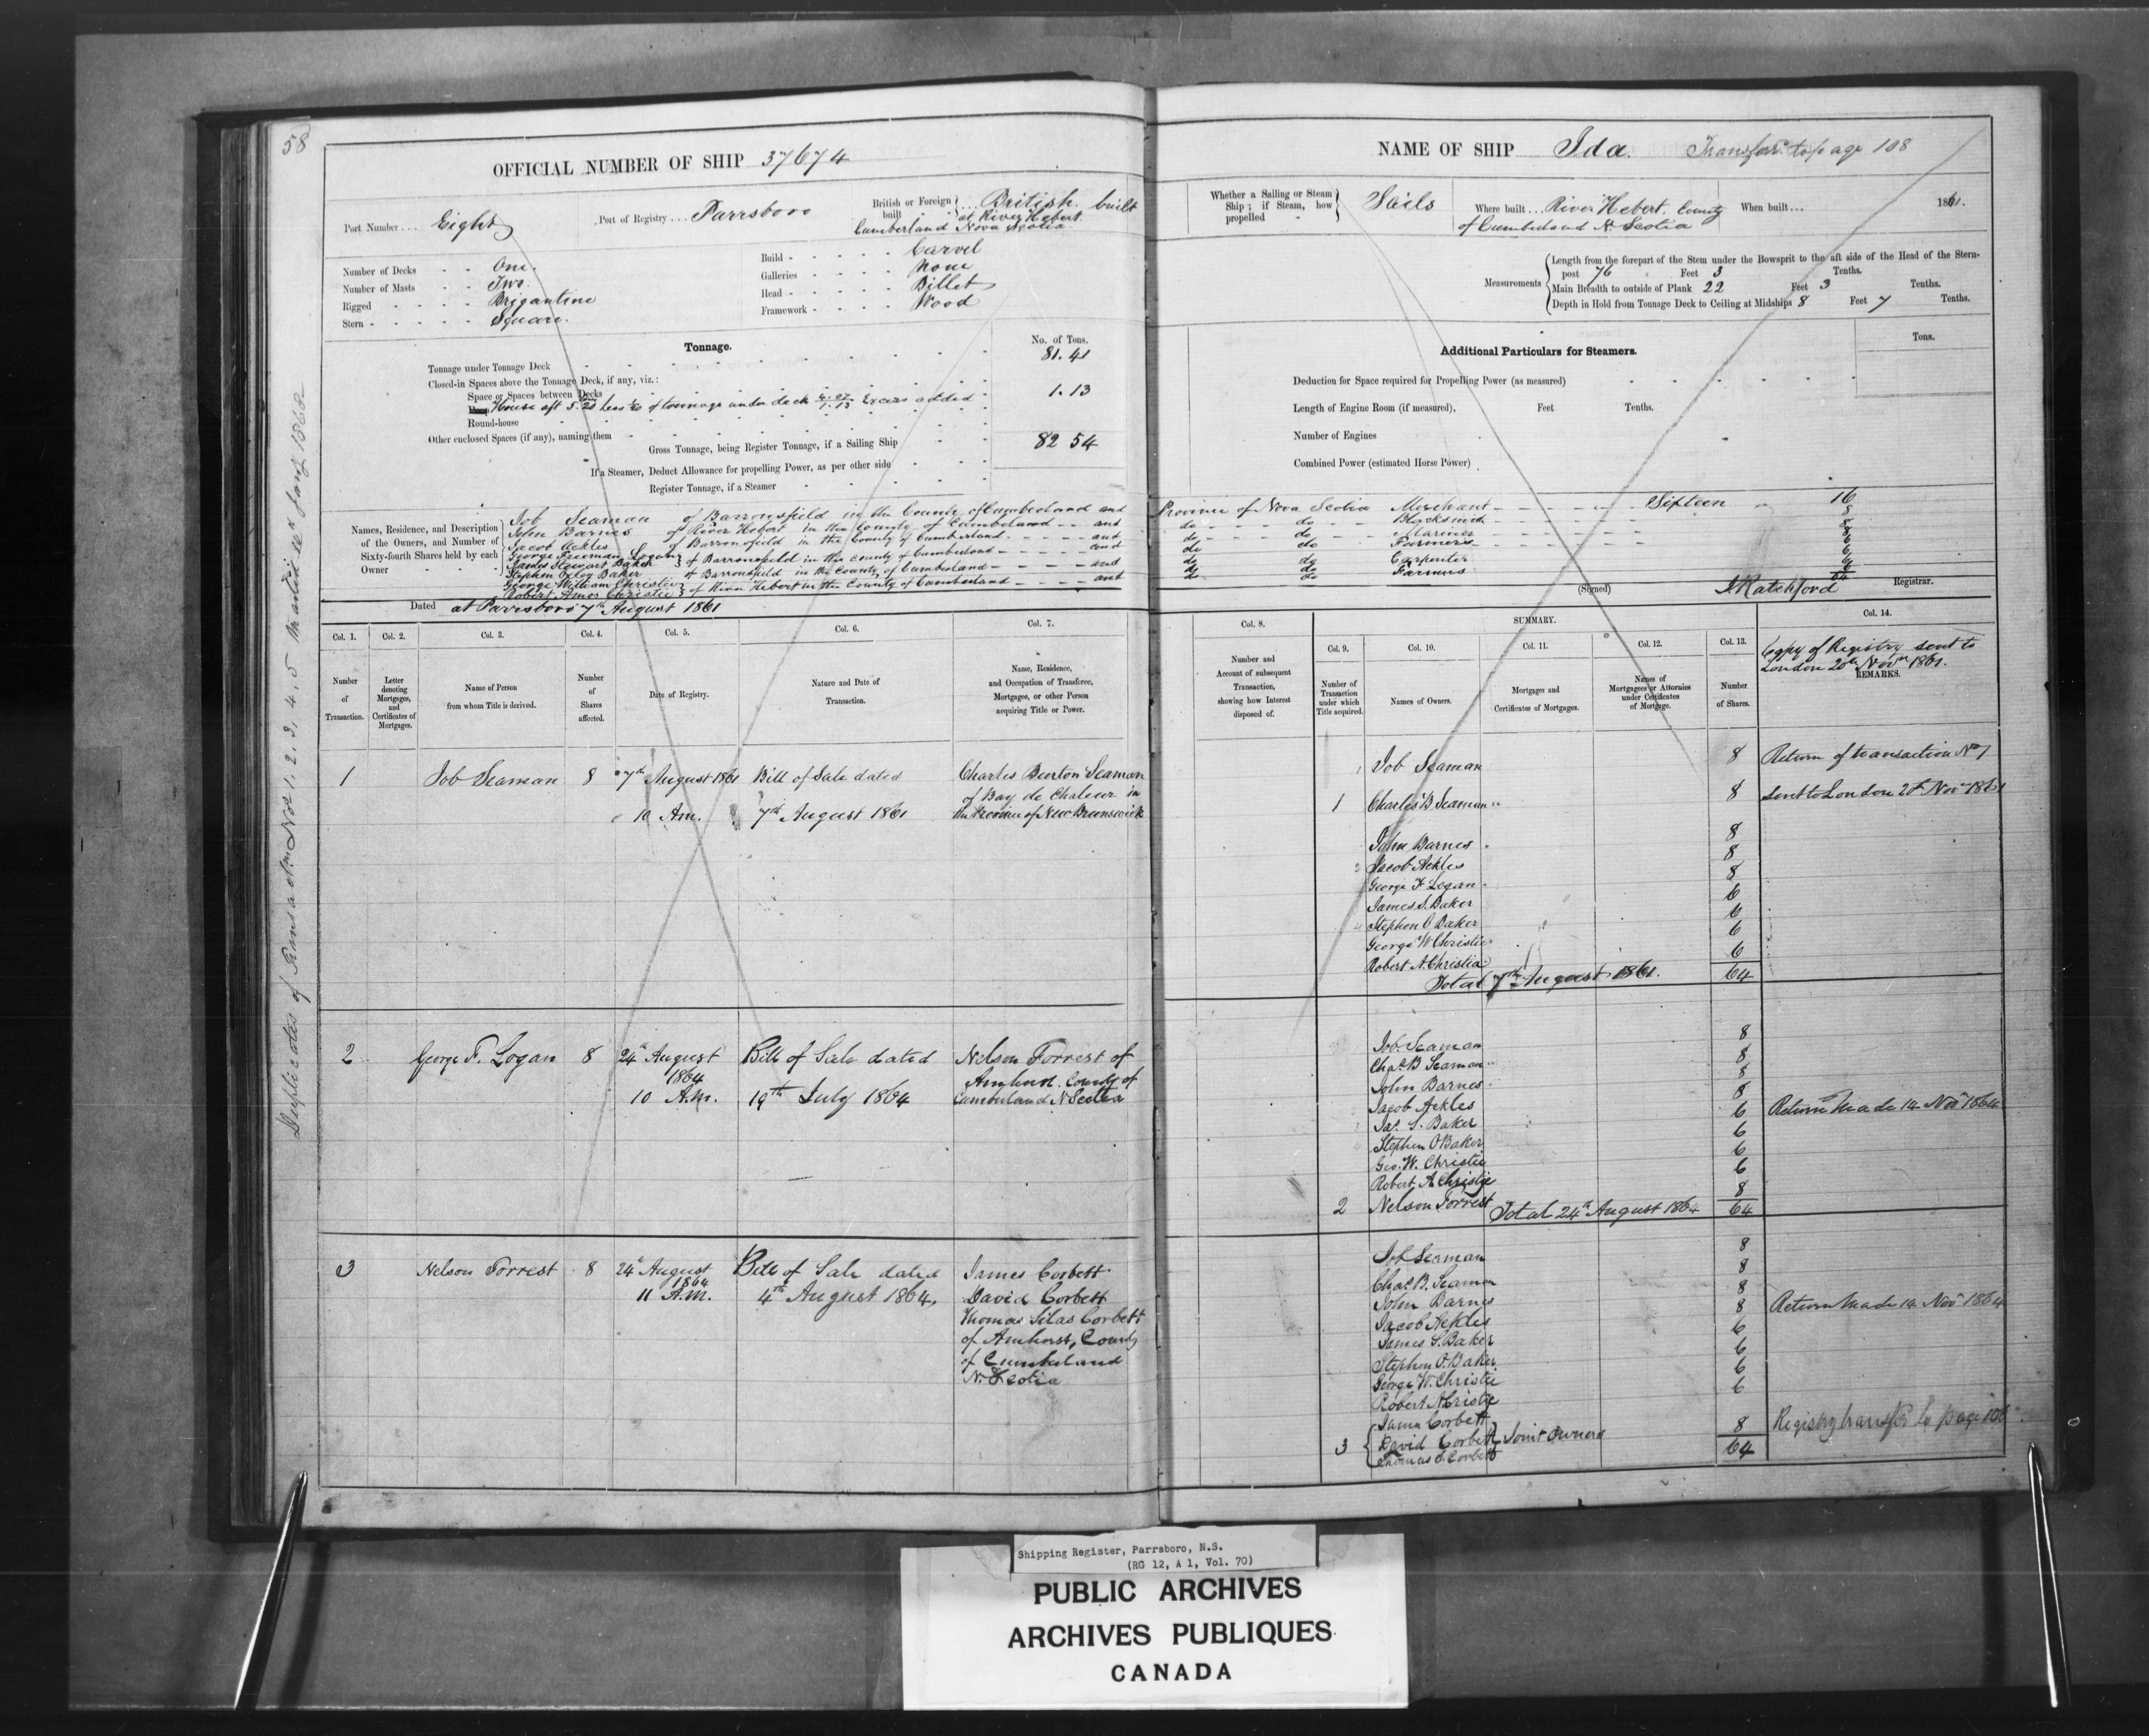 58
OFFICIAL NUMBER OF SHIP 37674
Port Number ... Eight
Port of Registry ... Parrsboro
British or Foreign built } ... British. built
at River Hebert
Cumberland Nova Scotia
Number of Decks - - One.
Number of Masts - - Two.
Rigged - - - - Brigantine
Stern - - - - - Square.
Build - - - - - Carvel
Galleries - - - - None
Head - - - - - Billet
Framework - - - - Wood
Tonnage.
No. of Tons.
Tonnage under Tonnage Deck 81.41
Closed-in Spaces above the Tonnage Deck, if any, viz.:
Space or Spaces between Decks
House aft 5.20 less of tonnage under deck 4.07 1.13 Excess added 1.13
Round-house
Other enclosed Spaces (if any), naming them
Gross Tonnage, being Register Tonnage, if a Sailing Ship 82 54
If a Steamer, Deduct Allowance for propelling Power, as per other side
Register Tonnage, if a Steamer
Names, Residence, and Description
of the Owners, and Number of
Sixty-fourth Shares held by each
Owner
Job Seaman of Barronsfield in the County of Cumberland and
John Barnes of River Hebert in the County of Cumberland - - and
Jacob Ackles of Barronsfield in the County of Cumberland - - - - and
George Freeman Logan
James Stewart Baker } of Barronsfield in the County of Cumberland - - - - and
Stephen Baker of Barronsfield in the County of Cumberland - - - and
George William Christie
Robert Amos Christie } of River Hebert in the County of Cumberland - - - and
Dated at Parrsboro 7th August 1861
NAME OF SHIP Ida. Transfer to page 108
Whether a Sailing or Steam
Ship; if Steam, how
propelled
Sails
Where built ... River Hebert. County
of Cumberland N. Scotia
When built ... 1861.
Measurements
Length from the forepart of the Stem under the Bowsprit to the aft side of the Head of the Stern-
post 76 Feet 3 Tenths.
Main Breadth to outside of Plank 22 Feet 3 Tenths.
Depth in Hold from Tonnage Deck to Ceiling at Midships 8 Feet 7 Tenths.
Additional Particulars for Steamers.
Tons.
Deduction for Space required for Propelling Power (as measured)
Length of Engine Room (if measured), Feet Tenths.
Number of Engines
Combined Power (estimated Horse Power)
Province of Nova Scotia Merchant - - - - Sixteen - 16
do - - - do - - Blacksmith - - - - 8
do - - - do - - Mariner - - - - 8
do do Farmers - - - - 8
6
do do Carpenter 6
do do Farmers 6
6
64
(Signed) J Ratchford Registrar.
Col. 1.
Number
of
Transaction.
Col. 2.
Letter
denoting
Mortgages,
and
Certificates of
Mortgages.
Col. 3.
Name of Person
from whom Title is derived.
Col. 4.
Number
of
Shares
affected.
Col. 5.
Date of Registry.
Col. 6.
Nature and Date of
Transaction.
Col. 7.
Name, Residence,
and Occupation of Transferee,
Mortgagee, or other Person
acquiring Title or Power.
Col. 8.
Number and
Account of subsequent
Transaction,
showing how Interest
disposed of.
SUMMARY.
Col. 9.
Number of
Transaction
under which
Title acquired.
Col. 10.
Names of Owners.
Col. 11.
Mortgages and
Certificates of Mortgages.
Col. 12.
Names of
Mortgagees or Attornies
under Certificates
of Mortgage.
Col. 13.
Number
of Shares.
Col. 14.
Copy of Registry sent to
London 20th Novr 1861.
REMARKS.
1 Job Seaman 8 7th August 1861 Bill of Sale dated Charles Burton Seaman
of Bay de Chaleur in
10 Am. 7th August 1861 the Province of New Brunswick
Job Seaman 8 Return of transaction No 1
1 Charles B Seaman 8 sent to London 20th Nov 1861
John Barnes 8
Jacob Ackles 8
George F Logan 8
James S. Baker 6
Stephen O Baker 6
George W Christie 6
Robert A. Christie 6
Total 7th August 1861. 64
2 George F. Logan 8 24th August Bill of Sale dated Nelson Forrest of
1864 Amherst. County of
10 A.m. 19th July 1864 Cumberland N Scotia
Job. Seaman 8
Chas. B Seaman 8
John Barnes 8
Jacob Ackles 8
Jas. S. Baker 6 Return Made 14 Novr 1864
Stephen O Baker 6
Geo. W. Christie 6
Robert A Christie 6
2 Nelson Forrest 8
Total 24th August 1864 64
3 Nelson Forrest 8 24th August Bill of Sale dated James Corbett
1864
11 A.M. 4th August 1864, David Corbett
Thomas Silas Corbett
of Amherst, County
of Cumberland
N. Scotia
Job Seaman 8
Chas. B. Seaman 8
John Barnes 8
Jacob Ackles 8 Return Made 14 Novr 1864
James S. Baker 6
Stephen O. Baker 6
George W. Christie 6
Robert A Cristie 6
3 { James Corbett
David Corbett } Joint Owners 8
Thomas S. Corbett 64
Registry transfd to page 108
Duplicates of Transactn Nos 1, 2, 3, 4, 5 1868
Shipping Register, Parrsboro, N.S.
(RG 12, A 1, Vol. 70)
PUBLIC ARCHIVES
ARCHIVES PUBLIQUES
CANADA